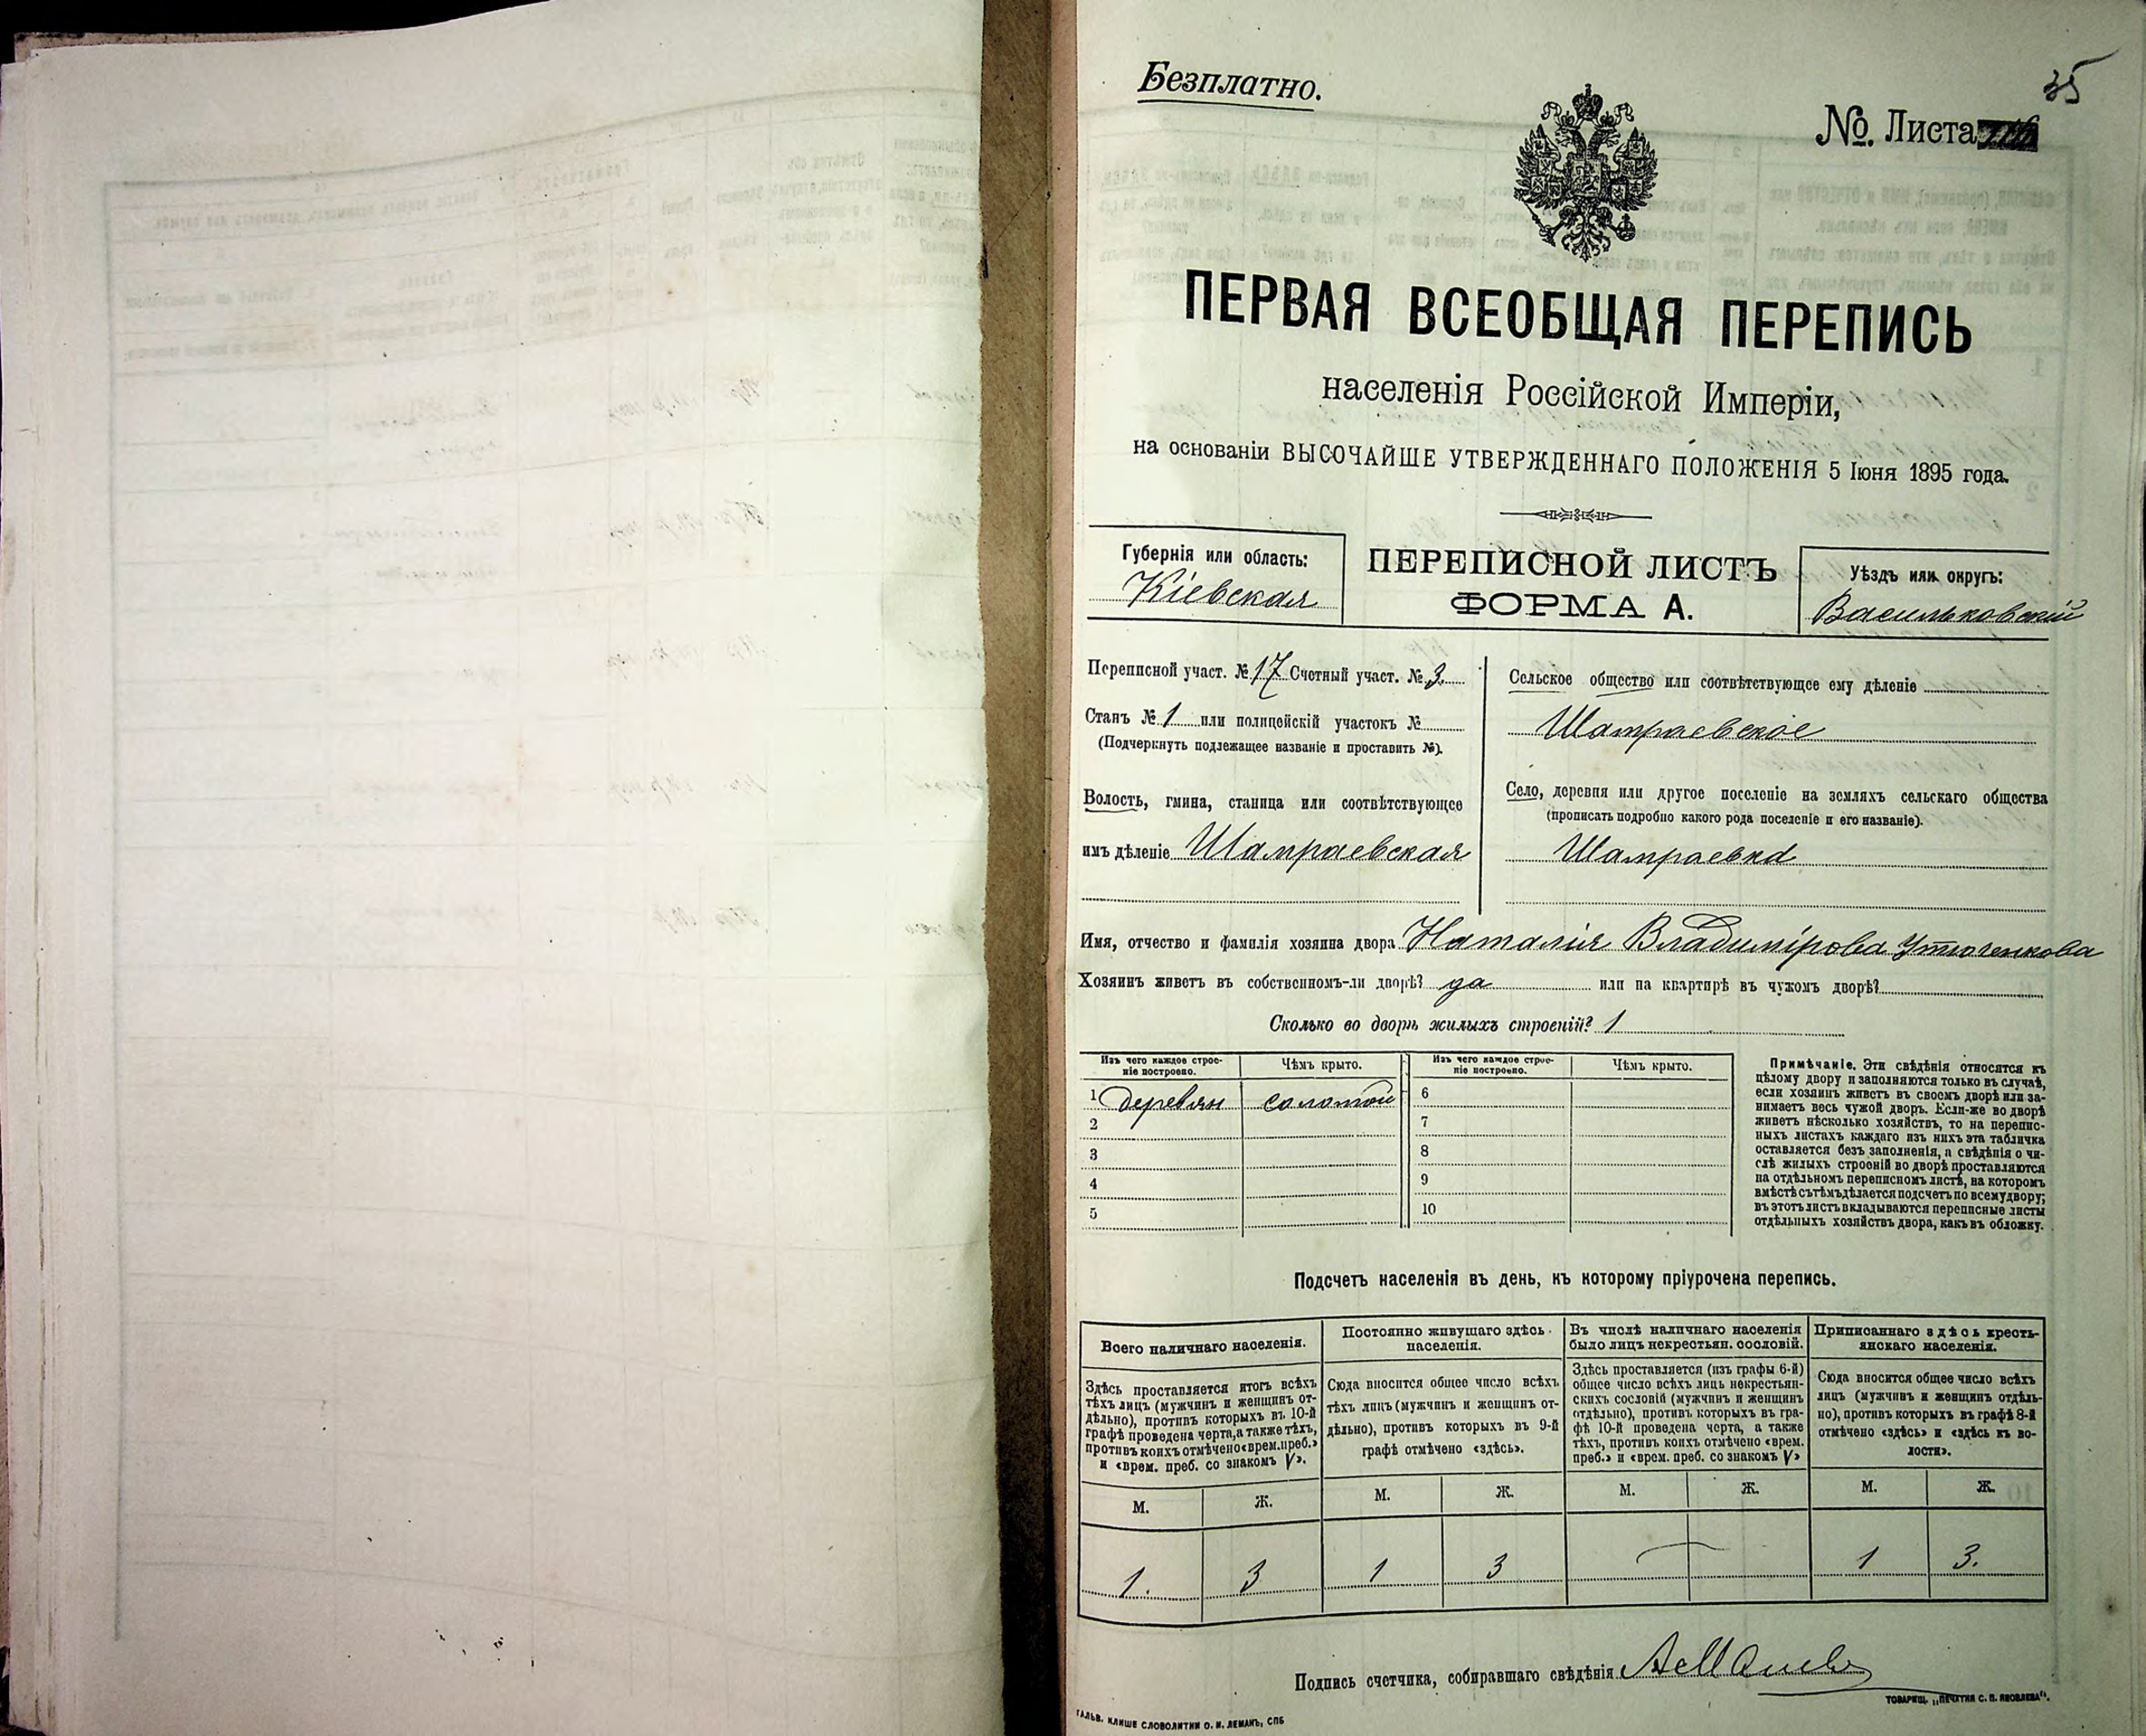 35
Безплатно.
№. Листа
ПЕРВАЯ ВСЕОБЩАЯ ПЕРЕПИСЬ
населенія Россійской Имперіи,
на основаніи ВЫСОЧАЙШЕ УТВЕРЖДЕННАГО ПОЛОЖЕНІЯ 5 Іюня 1895 года.
Губернія или область:
Кіевская
ПЕРЕПИСНОЙ ЛИСТЪ
ФОРМА А.
Уѣздъ или округъ:
Васильковскій
Переписной участ. № 17 Счетный участ. № 3
Станъ № 1 или полицейскій участокъ №
(Подчеркнуть подлежащее названіе и проставить №).
Волость, гмина, станица или соотвѣтствующее
имъ дѣленіе Шамраевская
Сельское общество или соотвѣтствующее ему дѣленіе
Шамраевское
Село, деревня или другое поселеніе на земляхъ сельскаго общества
(прописать подробно какого рода поселеніе и его названіе).
Шамраевка
Имя, отчество и фамилія хозяина двора Наталія Владимірова
Хозяинъ живетъ въ собственномъ-ли дворѣ? да или на квартирѣ въ чужомъ дворѣ?
Сколько во дворѣ жилыхъ строеній? 1
Изъ чего каждое строе-
ніе построено.
Чѣмъ крыто.
Изъ чего каждое строе-
ніе построено.
Чѣмъ крыто.
1 деревян соломой 6
2 7
3 8
4 9
5 10
Примѣчаніе. Эти свѣдѣнія относятся къ
цѣлому двору и заполняются только въ случаѣ,
если хозяинъ живетъ въ своемъ дворѣ или за-
нимаетъ весь чужой дворъ. Если-же во дворѣ
живетъ нѣсколько хозяйствъ, то на перепис-
ныхъ листахъ каждаго изъ нихъ эта табличка
оставляется безъ заполненія, а свѣдѣнія о чи-
слѣ жилыхъ строеній во дворѣ проставляются
на отдѣльномъ переписномъ листѣ, на которомъ
вмѣстѣ съ тѣмъ дѣлается подсчетъ по всему двору;
въ этотъ листъ вкладываются переписные листы
отдѣльныхъ хозяйствъ двора, какъ въ обложку.
Подсчетъ населенія въ день, къ которому пріурочена перепись.
Всего наличнаго населенія.
Здѣсь проставляется итогъ всѣхъ
тѣхъ лицъ (мужчинъ и женщинъ от-
дѣльно), противъ которыхъ въ 10-й
графѣ проведена черта, а также тѣхъ,
противъ коихъ отмѣчено «врем. преб.»
и «врем. преб. со знакомъ V».
Постоянно живущаго здѣсь
населенія.
Сюда вносится общее число всѣхъ
тѣхъ лицъ (мужчинъ и женщинъ от-
дѣльно), противъ которыхъ въ 9-й
графѣ отмѣчено «здѣсь».
Въ числѣ наличнаго населенія
было лицъ некрестьян. сословій.
Здѣсь проставляется (изъ графы 6-й)
общее число всѣхъ лицъ некрестьян-
скихъ сословій (мужчинъ и женщинъ
отдѣльно), противъ которыхъ въ гра-
фѣ 10-й проведена черта, а также
тѣхъ, противъ коихъ отмѣчено «врем.
преб.» и «врем. преб. со знакомъ V»
Приписаннаго здѣсь кресть-
янскаго населенія.
Сюда вносится общее число всѣхъ
лицъ (мужчинъ и женщинъ отдѣль-
но), противъ которыхъ въ графѣ 8-й
отмѣчено «здѣсь» и «здѣсь къ во-
лости».
М. Ж. М. Ж. М. Ж. М. Ж.
1. 3 1 3 1 3.
Подпись счетчика, собиравшаго свѣдѣнія
ГАЛЬВ. КЛИШЕ СЛОВОЛИТНИ О. И. ЛЕМАНЪ, СПБ
ТОВАРИЩ. „ПЕЧАТНЯ С. П. ЯКОВЛЕВА“.